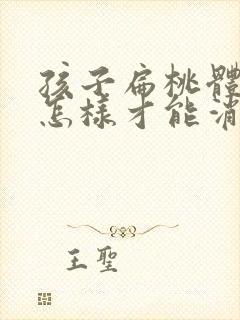 孩子扁桃體
怎樣才能消
王聖